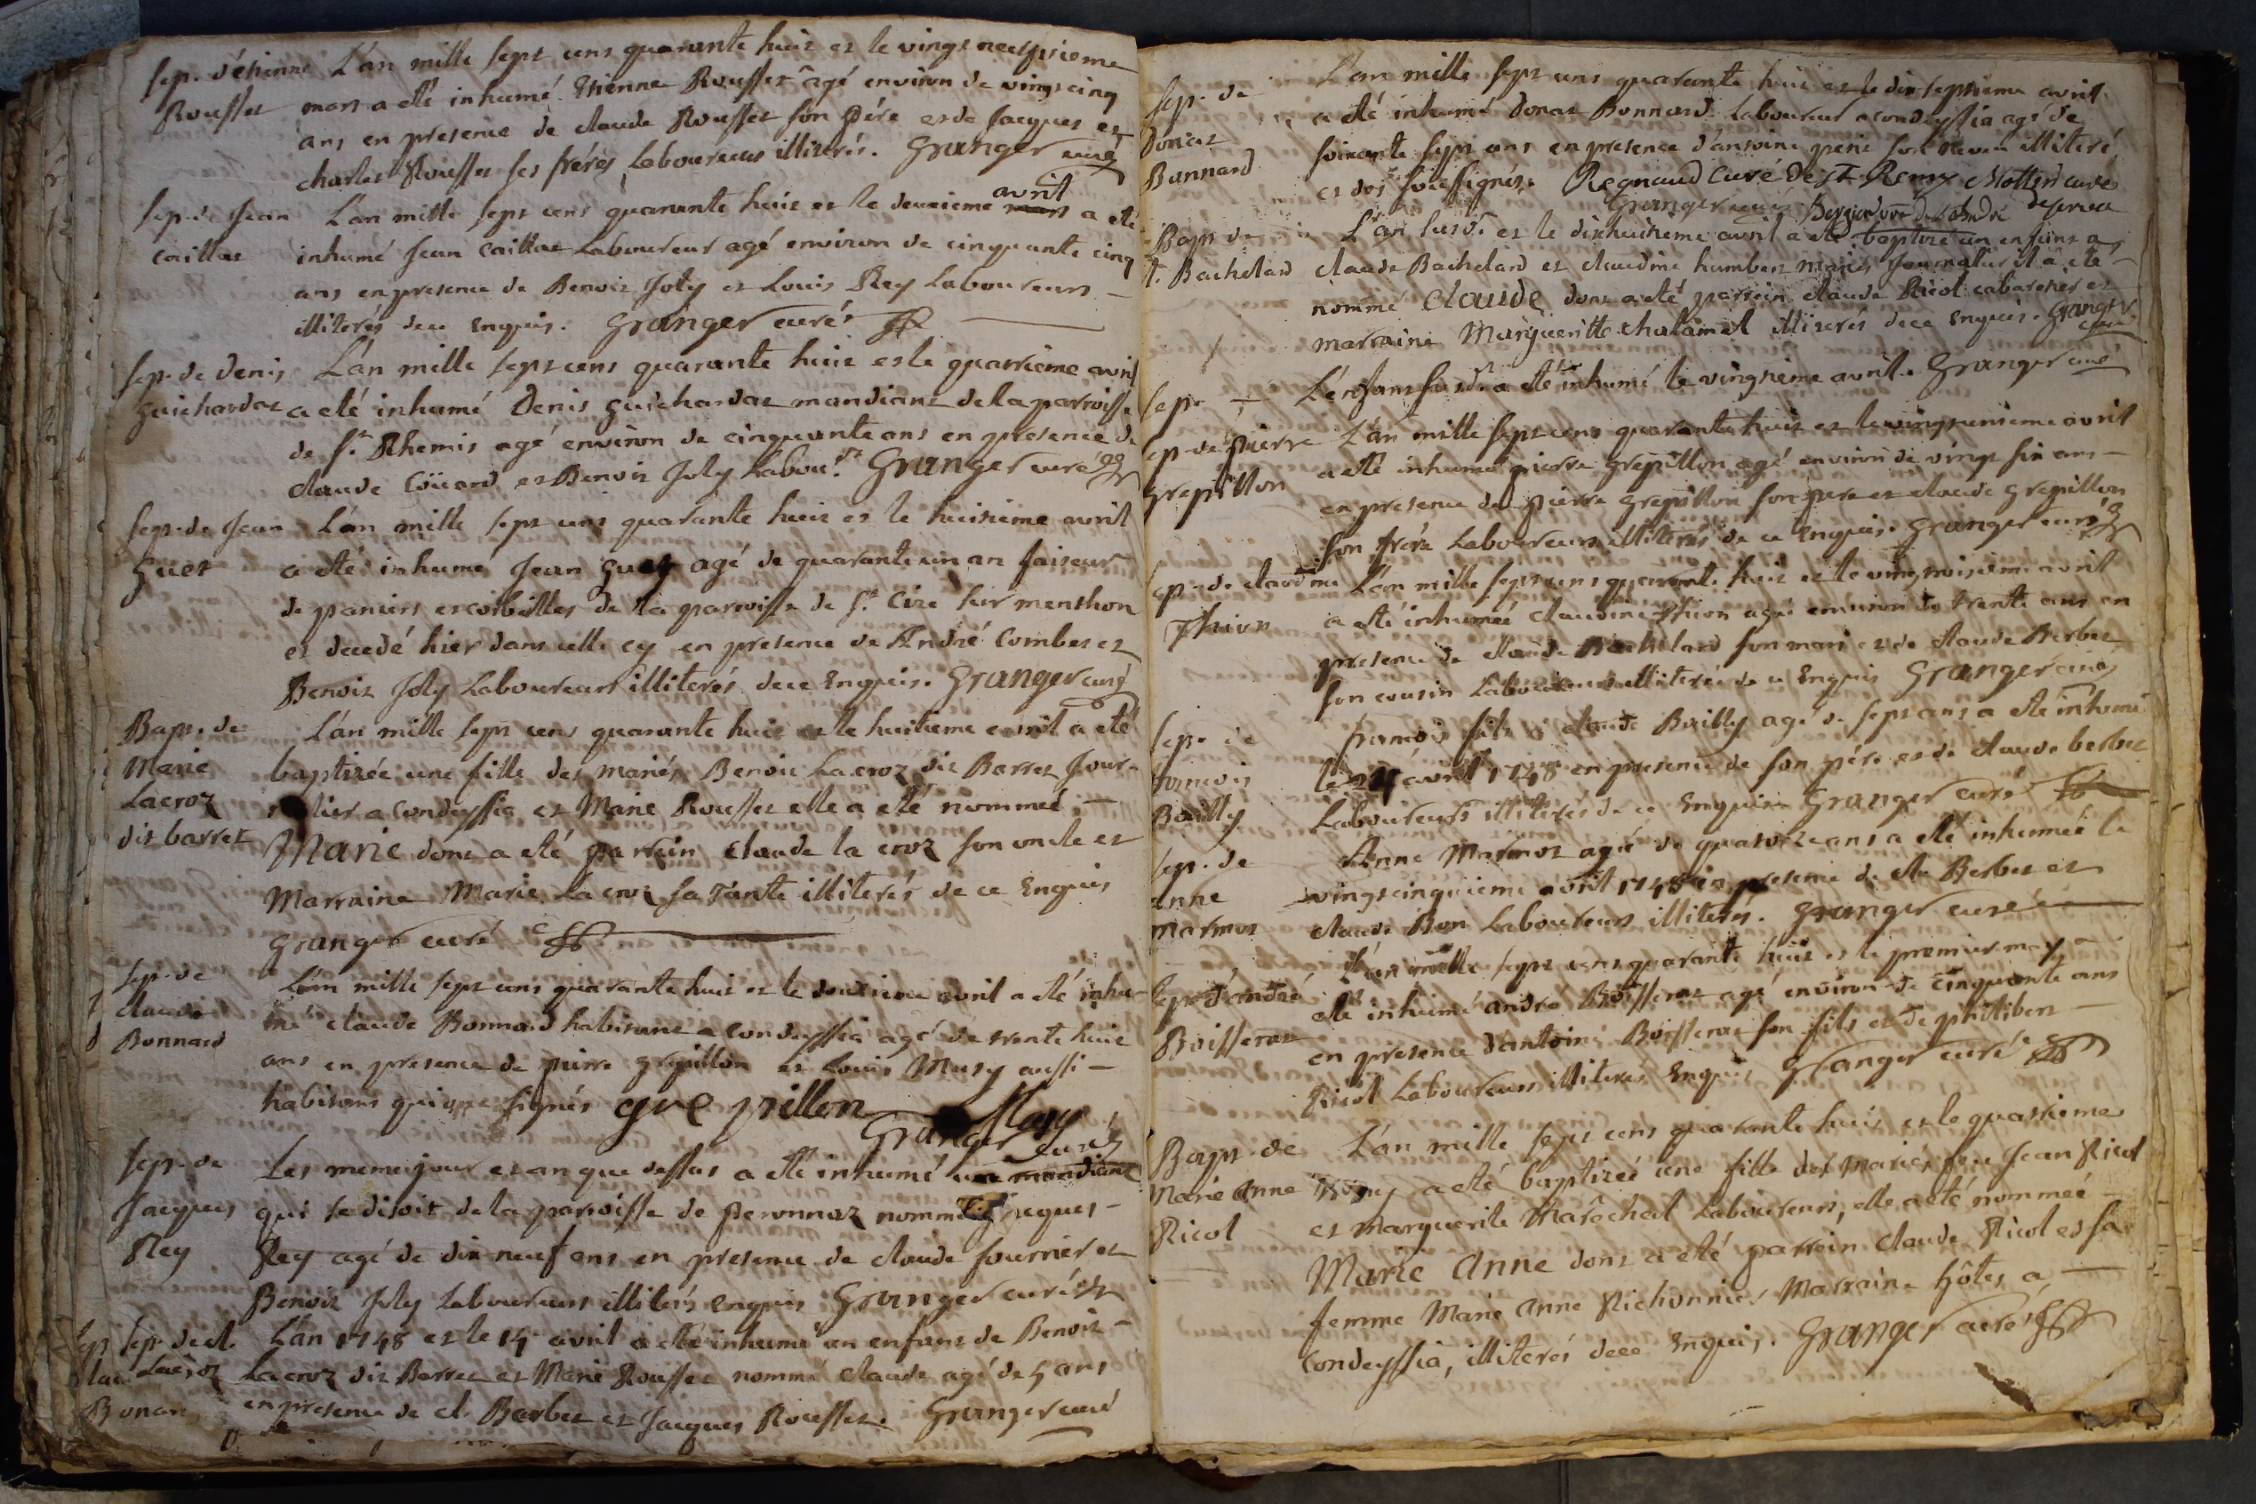 Sep. d'étienne L'an mille sept cens quarante huit et le vingt neufvieme
Rousset mars a eté inhumé Etienne Rousset agé environ de vingt cinq
ans en presence de claude Rousset son Pére et de Jacques et
charles Rousset ses fréres Laboureurs illiterés. Granger curé
Sep. de Jean L'an mille sept cens quarante huit et le deuxieme avril a eté
caillat inhumé Jean caillat Laboureur agé environ de cinquante cinq
ans en presence de Benoit Joly et Louis Rey Laboureurs
illiterés de ce Enquis. Granger curé
Sep. de Denis L'an mille sept cens quarante huit et le quatrieme avril
Guichardat a eté inhumé Denis guichardat mandiant de la parroisse
de St. Rhemis agé environ de cinquante ans en presence de
claude Coüard et Benoit Joly Labour. Granger curé
Sep. de Jean L'an mille sept cens quarante huit et le huitieme avril
Guet a eté inhumé Jean guet agé de quarante un an faiseur
de paniers et corbeilles de la parroisse de St. Cire sur menthon
et decedé hier dans celle cy en presence de André Combet et
Benoit Joly Laboureurs illiterés de ce Enquis. Granger curé
Bapt. de L'an mille sept cens quarante huit et le huitieme avril a eté
Marie baptizée une fille des mariés Benoit Lacroz dit Barret Jour-
Lacroz nalier a Condeyssia et Marie Rousset elle a eté nommeé
dit barret Marie dont a eté parrain claude la croz son oncle et
Marraine Marie Lacroz sa Tante illiterés de ce Enquis
Granger curé
Sep. de L'an mille sept cens quarante huit et le douzieme avril a eté inhu-
claude mé claude Bonnard habitant a Condeyssia agé de trente huit
Bonnard ans en presence de pierre grepillon et Louis Musy aussi
habitans qui ont signés gre pillon Musy
Granger curé
Sep. de Les meme jour et an que dessus a eté inhumé un mandiant
Jacques qui se disoit de la parroisse de Peronnaz nommé Jacques
Rey Rey agé de dix neuf ans en presence de claude fournier et
Benoit Joly Laboureurs illiterés enquis Granger curé
Sep. de cl. L'an 1748 et le 14 avril a eté inhumé un enfant de Benoit
Lacroz Lacroz dit Barret et Marie Rousset nommé claude agé de 5 ans
Bonar en presence de cl. Barbet et Jacques Rousset. Granger curé
Sep. de L'an mille sept cens quarante huit et le dix septieme avril
Donat a eté inhumé Donat Bonnard Laboureur a condeyssia agé de
Bonnard soixante sept ans en presence d'antoine son neveu illiteré
et des soussignés. Regnaud curé de St. Remy curé
Granger curé
Bapt. de L'an susd. et le dixhuitieme avril a eté baptizé un enfant a
C. Bachelard claude Bachelard et claudine humbert mariés Journalier il a eté
nommé Claude dont a eté parrein claude Ricol cabaretier et
marraine Marguerite chalamel illiterés de ce Enquis. Granger
curé
Sep. L'enfant susd. a eté inhumé le vingtieme avril. Granger curé
Sep. de Pierre L'an mille sept cens quarante huit et le vingtunieme avril
Grepillon a eté inhumé pierre grepillon agé environ de vingt six ans
en presence de pierre grepillon son pere et claude grepillon
son frére Laboureurs illiterés de ce Enquis. Granger curé
Sep. de claudine L'an mille sept cens quarante huit et le vingttroisieme avril
Thion a eté inhumeé claudine Thion ageé environ de trente ans en
presence de claude Bachelard son mari et de claude Barbet
son cousin Laboureurs illiterés de ce Enquis Granger curé
Sep. de francois fils a claude Bailly agé de sept ans a eté inhumé
francois le avril 1748 en presence de son pére et de claude berbet
Bailly Laboureurs illiterés de ce Enquis Granger curé
Sep. de Anne Marmot ageé de quatorze ans a eté inhumeé le
Anne vingtcinquieme avril 1748 en presence de cl. Berbet et
marmot claude Bon Laboureurs illiterés. Granger curé
Sep. d'andré L'an mille sept cens quarante huit et le premier may a
Boisserat eté inhumé andré Boisserat agé environ de cinquante ans
en presence d'antoine Boisserat son fils et de philibert
Ricol Laboureurs illiterés Enquis Granger curé
Bapt. de L'an mille sept cens quarante huit et le quatrieme
Marie Anne may a eté baptizeé une fille des mariés Jean Ricol
Ricol et Marguerite Marêchal Laboureurs, elle a eté nommeé
Marie Anne dont a eté parrein claude Ricol et sa
femme Marie Anne Richonnier Marraine hôtes a
Condeyssia, illiterés de ce Enquis. Granger curé